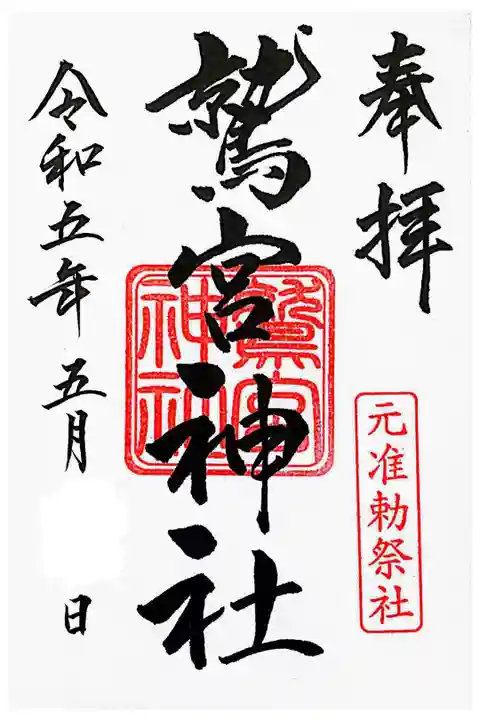 奉拝
元准勅祭社
鷲宮神社
鷲宮
神社
令和五年五月 日